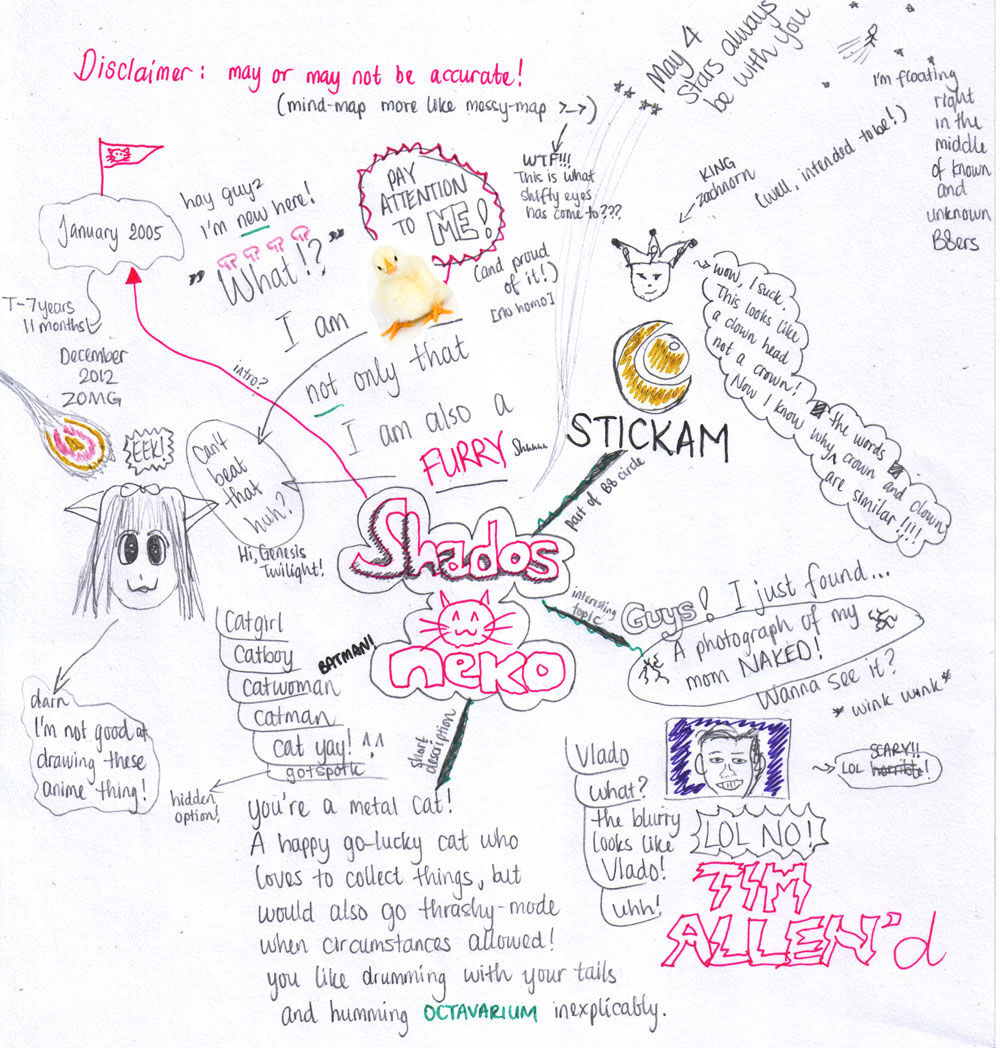 Disclaimer: may or may not be accurate!
(mind-map more like messy-map >_>)
May 4
Stars always
be with you
I'm floating
right
in the
middle
of known
and
unknown
B8ers
WTF!!!
This is what
shifty eyes
has come to???
KING
zachnorn
(well, intended to be!)
January 2005
T-7years
11 months!
December
2012
ZOMG
hay guyz
I'm new here!
"What!?"
PAY
ATTENTION
TO ME!
(and proud
of it!)
[no homo]
I am
not only that
I am also a
FURRY Shhhhh
intro?
EEK!
Can't
beat
that
huh?
Hi, Genesis
Twilight!
wow, I suck.
This looks like
a clown head
not a crown!
Now I know why the words
crown and clown
are similar!!!!
STICKAM
part of B8 circle
Shados
neko
interesting
topic
Guys! I just found...
A photograph of my
mom NAKED!
Wanna see it?
* wink wink *
Catgirl
Catboy
catwoman
BATMAN!
catman
cat yay! ^.^
gotspork
hidden
option!
darn
I'm not good at
drawing these
anime thing!
short
description
you're a metal cat!
A happy go-lucky cat who
loves to collect things, but
would also go thrashy-mode
when circumstances allowed!
you like drumming with your tails
and humming OCTAVARIUM inexplicably.
Vlado
what?
the blurry
looks like
Vlado!
uhh!
SCARY!!
LOL horrible!
LOL NO!
TIM
ALLEN'd